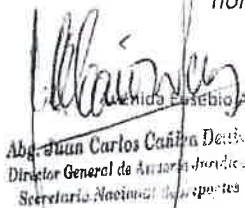 nor
enida Eusebio
Abg. Juan Carlos Cañiza
Director General de Asesoría Jurídica
Secretaría Nacional de Deportes